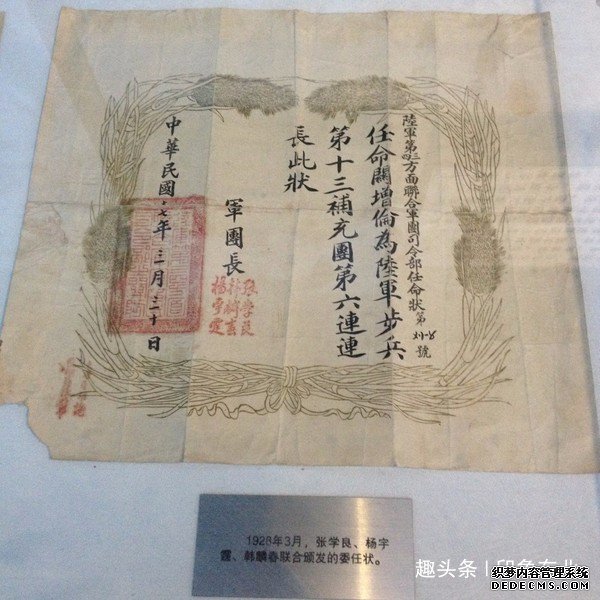 陸軍第三四方面聯合軍團司令部任命狀第
號
任命關增倫為陸軍步兵
第十三補充團第六連連
長此狀
軍團長
張學良
韓麟春
楊宇霆
中華民國十七年三月三十日
1928年3月，张学良、杨宇
霆、韩麟春联合颁发的委任状。
趣头条
织梦内容管理系统
DEDECMS.COM